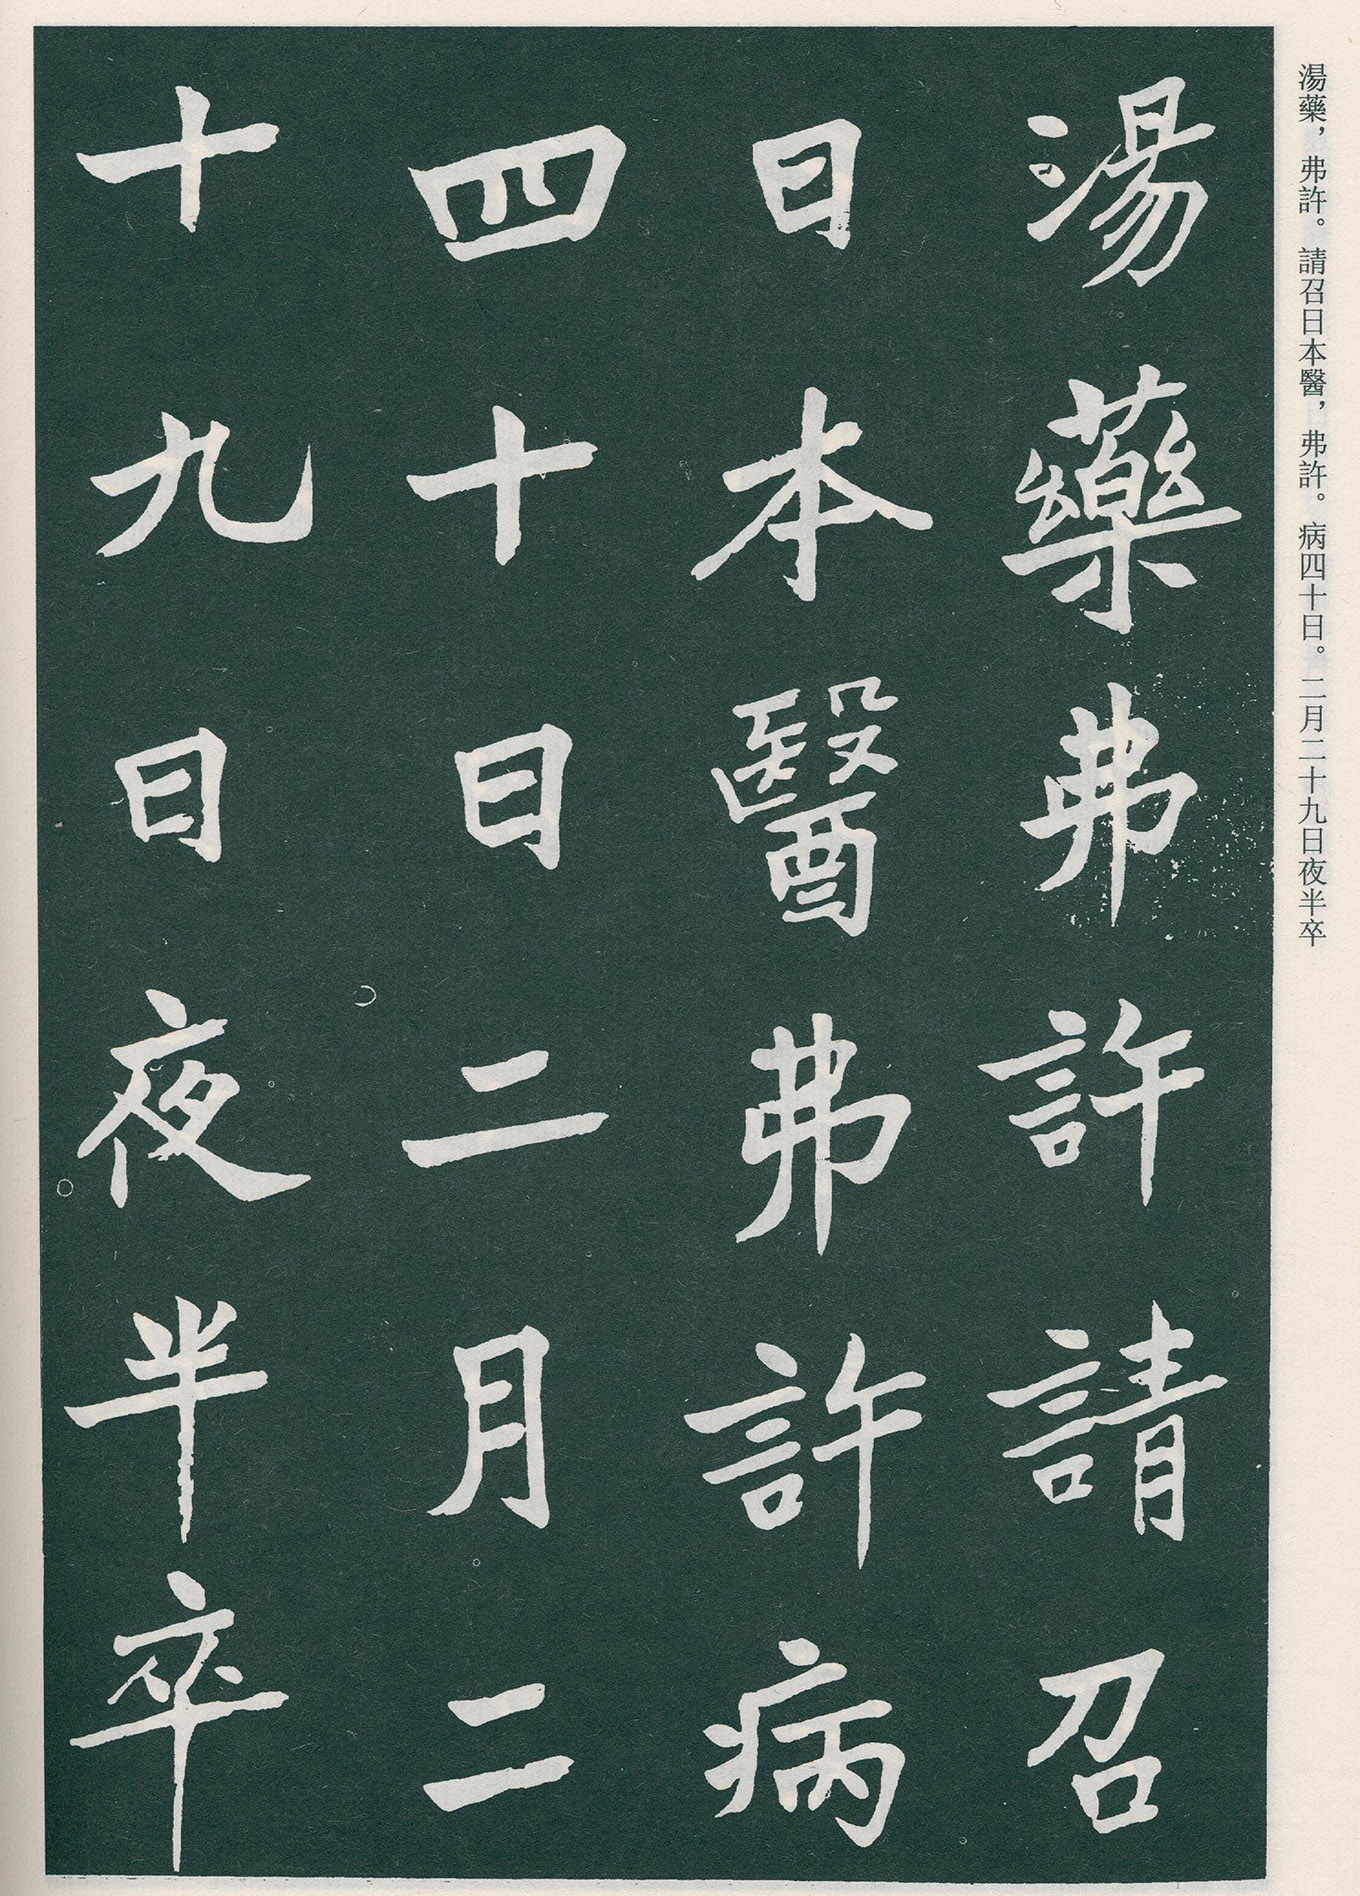 湯藥，弗許。請召日本醫，弗許。病四十日。二月二十九日夜半卒
湯藥弗許請召
日本醫弗許病
四十日二月二
十九日夜半卒